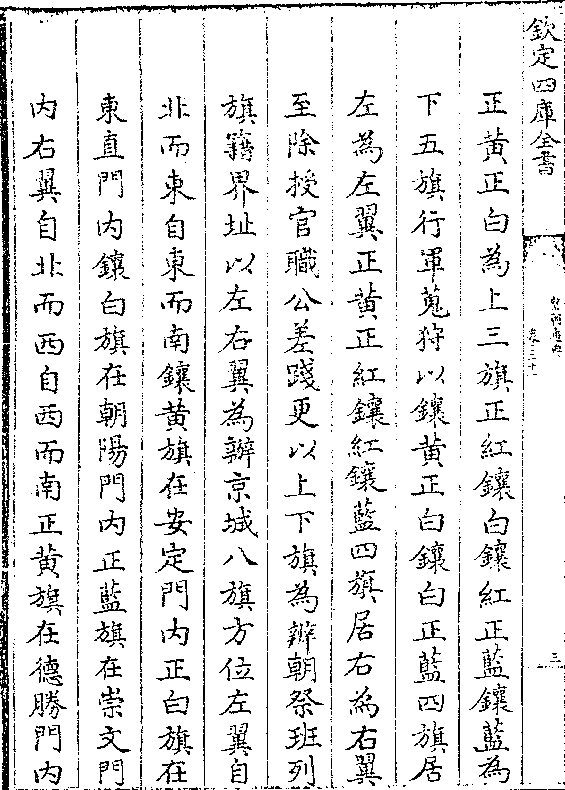 欽定四庫全書
皇朝通典
卷三十一
三
正黄正白為上三旗正紅鑲白鑲紅正藍鑲藍為
下五旗行軍蒐狩以鑲黄正白鑲白正藍四旗居
左為左翼正黄正紅鑲紅鑲藍四旗居右為右翼
至除授官職公差踐更以上下旗為辨朝祭班列
旗籍界址以左右翼為辨京城八旗方位左翼自
北而東自東而南鑲黄旗在安定門内正白旗在
東直門内鑲白旗在朝陽門内正藍旗在崇文門
内右翼自北而西自西而南正黄旗在德勝門内